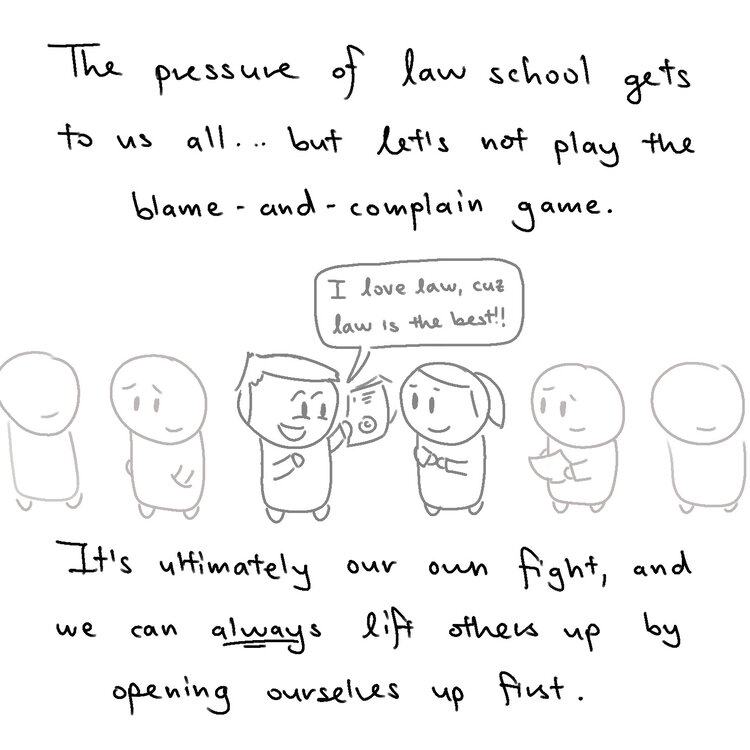 The pressure of law school gets
to us all... but let's not play the
blame-and-complain game.
I love law, cuz
law is the best!!
It's ultimately our own fight, and
we can always lift others up by
opening ourselves up first.